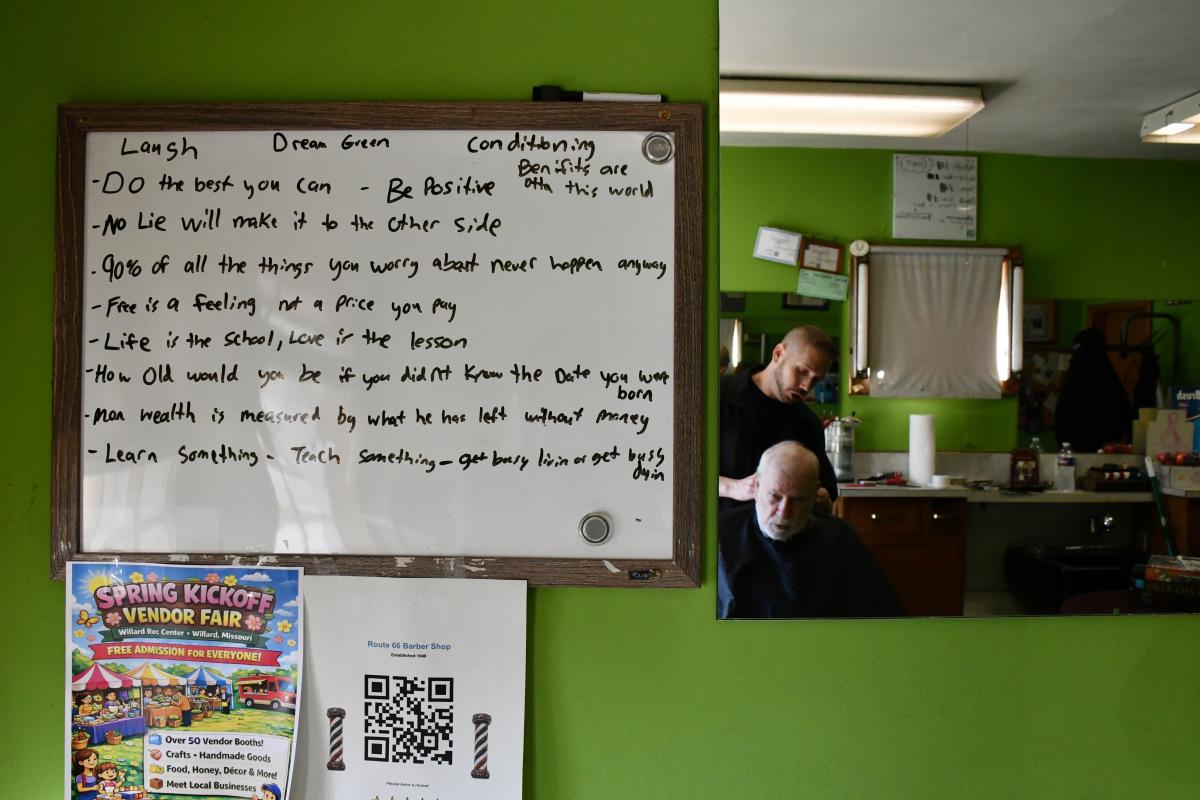 Laugh Dream Green Conditioning
Benifits are
-Do the best you can - Be Positive otta this world
-No Lie will make it to the other side
-90% of all the things you worry about never happen anyway
-Free is a feeling not a price you pay
-Life is the school, Love is the lesson
-How Old would you be if you didn't Know the Date you were
born
-Man wealth is measured by what he has left without money
-Learn Something - Teach something - get busy livin or get busy
dyin
SPRING KICKOFF
VENDOR FAIR
Willard Rec Center • Willard, Missouri
FREE ADMISSION FOR EVERYONE!
Over 50 Vendor Booths!
Crafts • Handmade Goods
Food, Honey, Décor & More!
Meet Local Businesses
Route 66 Barber Shop
Established 1948
Please leave a review!